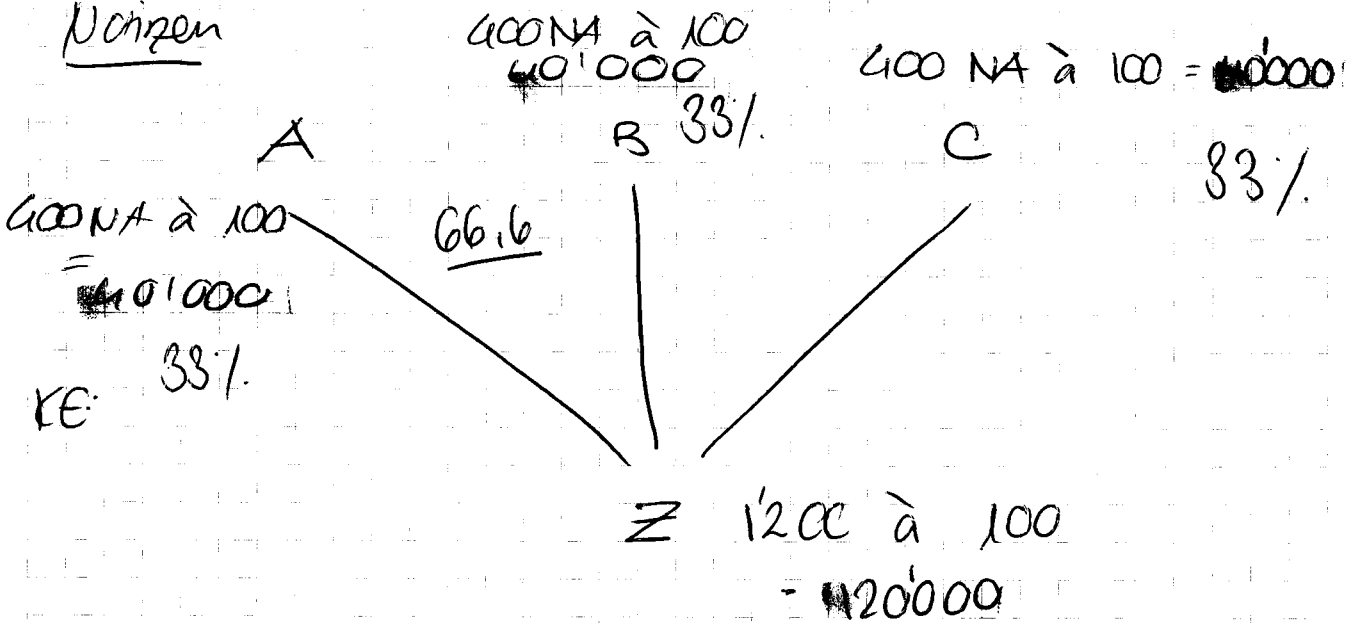 Notizen
400 NA à 100
40'000
33%
400 NA à 100 = 40'000
A
B
C
33%
400 NA à 100
=
40'000
66,6
33%
KE:
Z 1'200 à 100
= 120'000